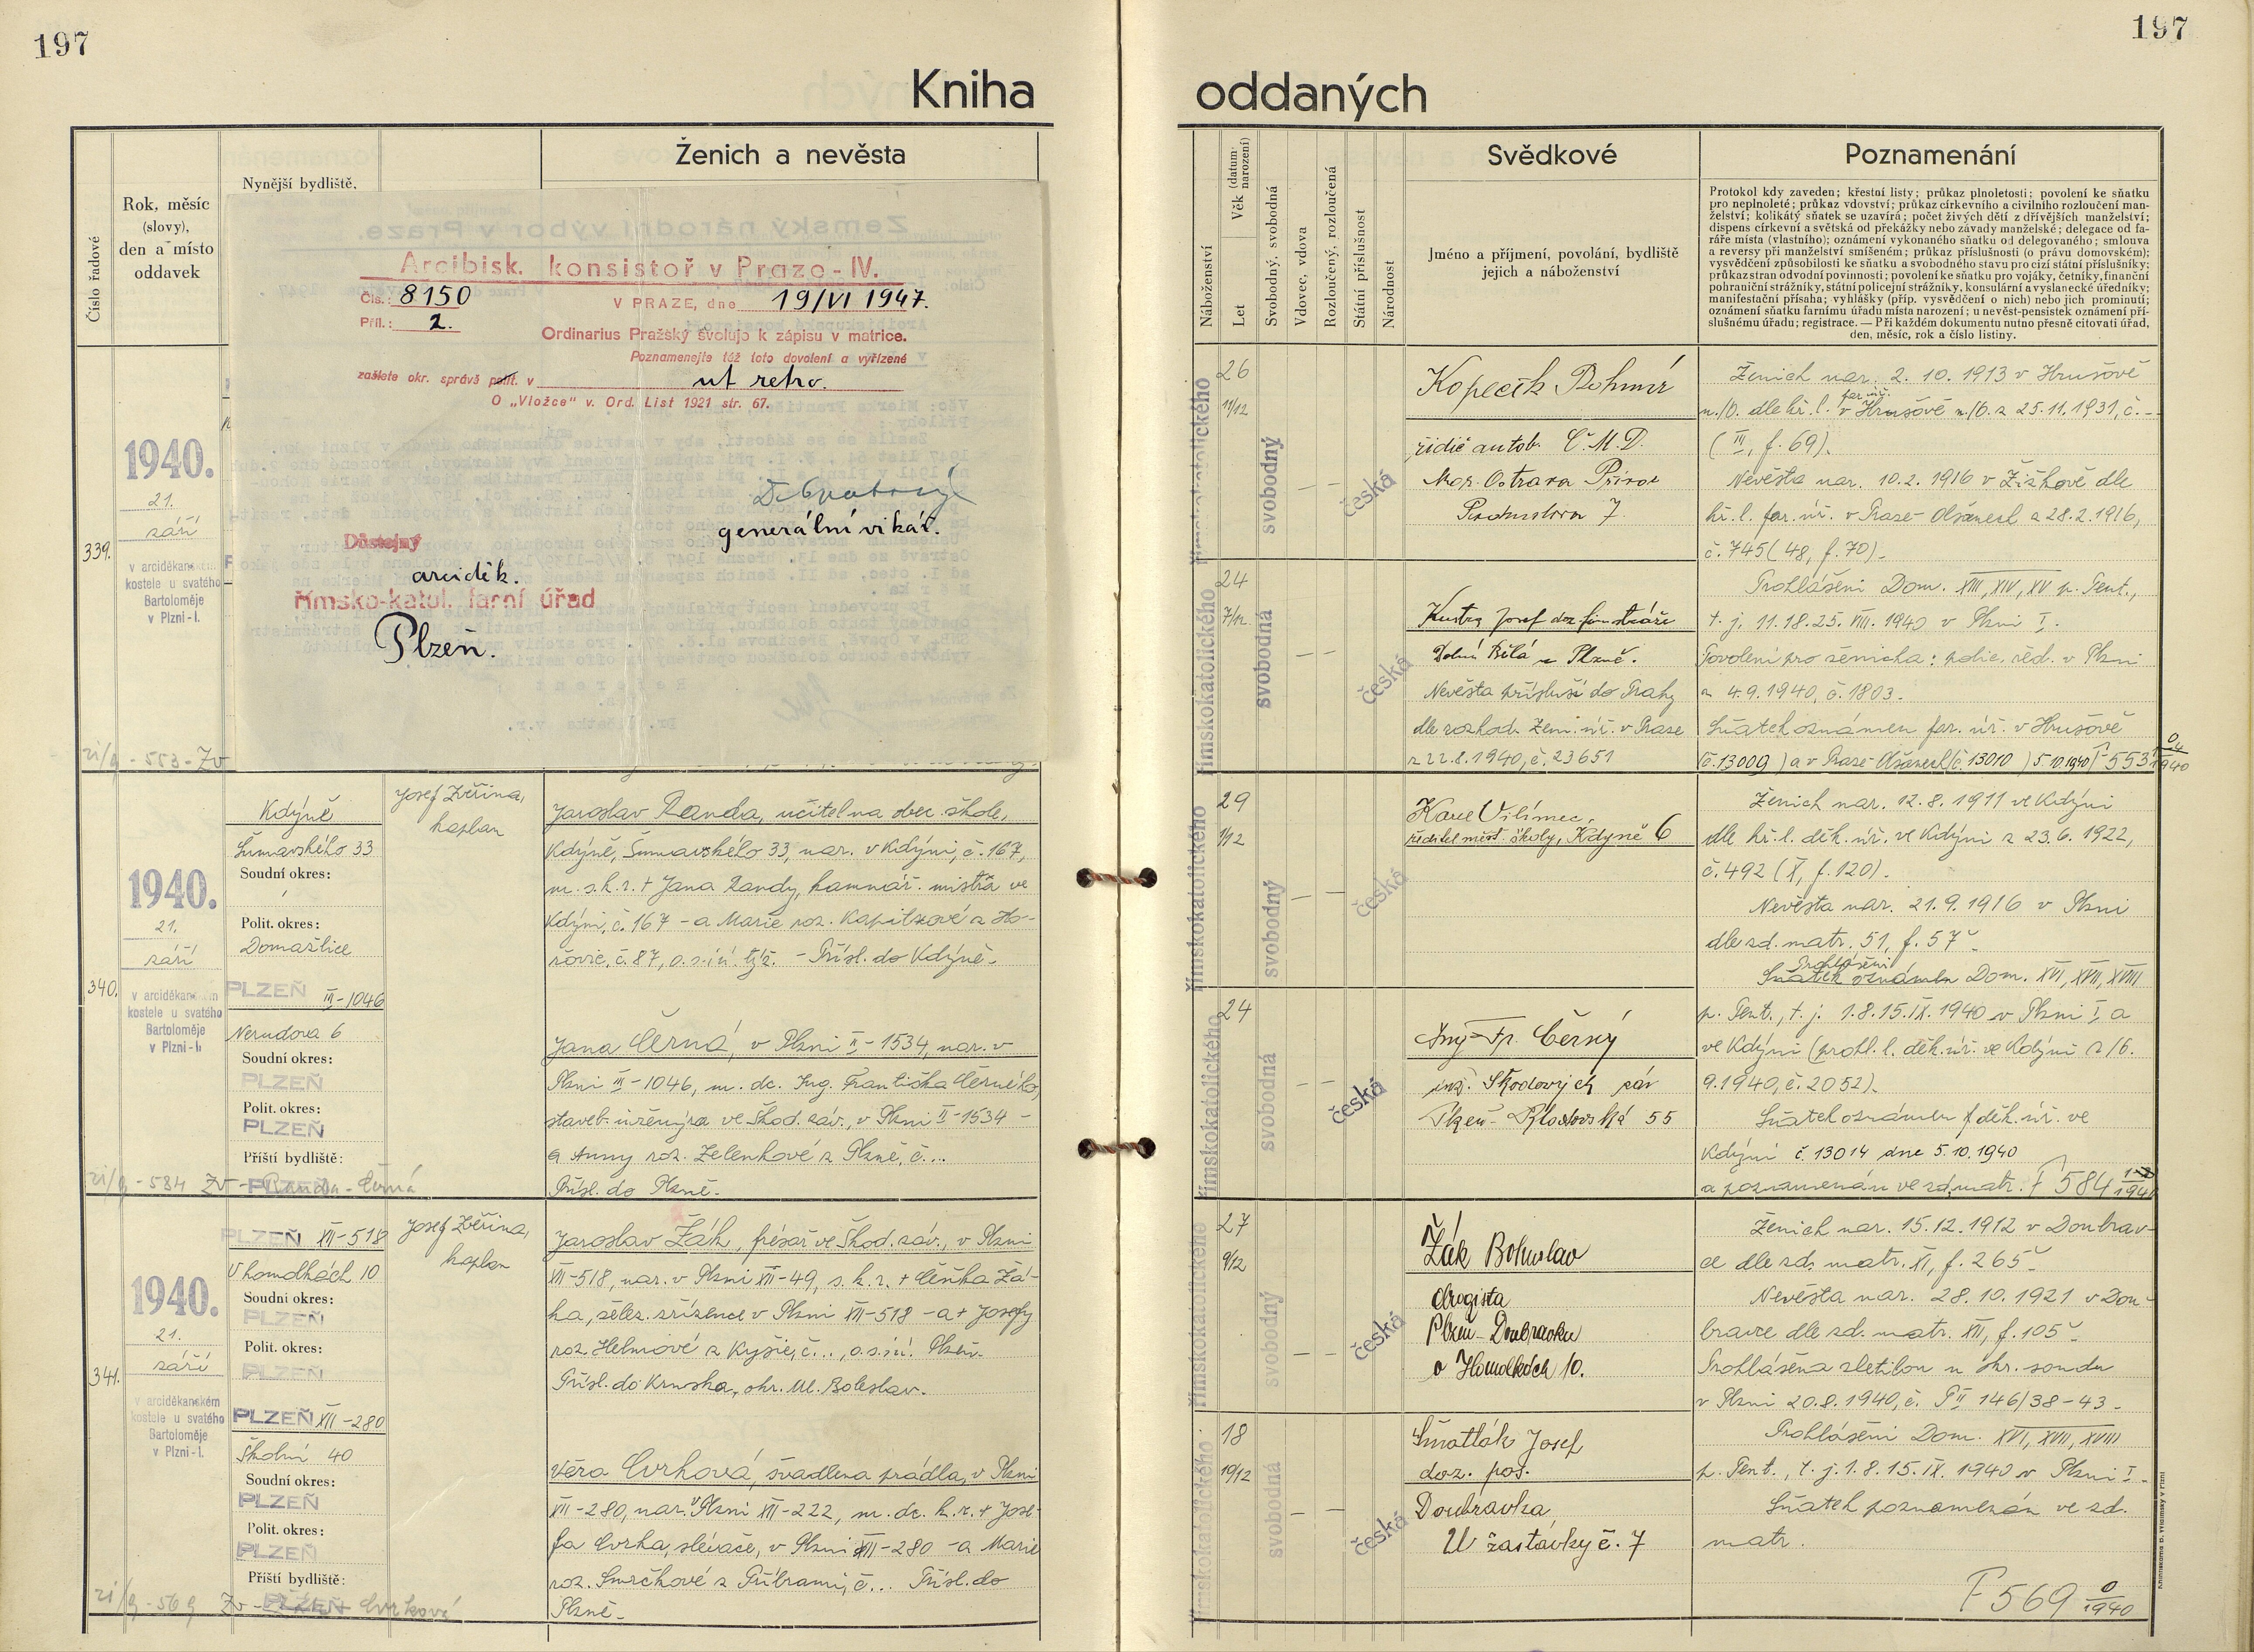 197
197
Kniha
oddaných
Číslo řadové
Rok, měsíc
(slovy),
den a místo
oddavek
Nynější bydliště,
Ženich a nevěsta
1940.
21.
září
339.
v arciděkanském
kostele u svatého
Bartoloměje
v Plzni-I.
ri/9 - 553 - Zv
Arcibisk. konsistoř v Praze-IV.
Čís.: 8150
V PRAZE, dne 19/VI 1947.
Příl.: 2.
Ordinarius Pražský svoluje k zápisu v matrice.
Poznamenejte též toto dovolení a vyřízené
zašlete okr. správě polit. v ut retro.
O „Vložce" v. Ord. List 1921 str. 67.
generální vikář.
Důstojný
arciděk.
římsko-katol. farní úřad
Plzeň.
1940.
21.
září
340.
v arciděkanském
kostele u svatého
Bartoloměje
v Plzni-I.
Kdýně
Šumavského 33
Soudní okres:
Polit. okres:
Domažlice
PLZEŇ III-1046
Nerudova 6
Soudní okres:
PLZEŇ
Polit. okres:
PLZEŇ
Příští bydliště:
PLZEŇ
ri/9 - 584 Zv - Randa - Černá
Josef Zvěřina,
kaplan
Jaroslav Randa, učitel na obec. škole,
Kdýně, Šumavského 33, nar. v Kdýni, č. 167,
m. s. k. r. + Jana Randy, kamnář. mistra ve
Kdýni, č. 167 - a Marie roz. Kapitzové z Ho-
řovic, č. 87, o. s. i ú. týž. - Přísl. do Kdýně.
Jana Černá, v Plzni II-1534, nar. v
Plzni III-1046, m. dc. Ing. Františka Černého,
staveb. inženýra ve Škod. záv., v Plzni II-1534 -
a Anny roz. Zelenkové z Plzně, č...
Přísl. do Plzně.
1940.
21.
září
341.
v arciděkanském
kostele u svatého
Bartoloměje
v Plzni-I.
PLZEŇ XII-518
V homolkách 10
Soudní okres:
PLZEŇ
Polit. okres:
PLZEŇ
PLZEŇ XII-280
Školní 40
Soudní okres:
PLZEŇ
Polit. okres:
PLZEŇ
Příští bydliště:
PLZEŇ
ri/9 - 569 Zv - Žák - Cvrková
Josef Zvěřina,
kaplan
Jaroslav Žák, frésař ve Škod. záv., v Plzni
XII-518, nar. v Plzni XII-49, s. k. r. + Čeňka Žá-
ka, želez. zřízence v Plzni XII-518 - a + Josefy
roz. Helmové z Kyšic, č..., o. s. i ú. Plzeň.
Přísl. do Krnska, okr. Ml. Boleslav.
Věra Cvrková, švadlena prádla, v Plzni
XII-280, nar. v Plzni XII-222, m. dc. k. r. + Jose-
fa Cvrka, slévače, v Plzni XII-280 - a Marie
roz. Smrčkové z Příbrami, č... Přísl. do
Plzně.
Náboženství
Věk (datum narození)
Let
Svobodný, svobodná
Vdovec, vdova
Rozloučený, rozloučená
Státní příslušnost
Národnost
Svědkové
Jméno a příjmení, povolání, bydliště
jejich a náboženství
Poznamenání
Protokol kdy zaveden; křestní listy; průkaz plnoletosti; povolení ke sňatku
pro neplnoleté; průkaz vdovství; průkaz církevního a civilního rozloučení man-
želství; kolikátý sňatek se uzavírá; počet živých dětí z dřívějších manželství;
dispens církevní a světská od překážky nebo závady manželské; delegace od fa-
ráře místa (vlastního); oznámení vykonaného sňatku od delegovaného; smlouva
a reversy při manželství smíšeném; průkaz příslušnosti (o právu domovském);
vysvědčení způsobilosti ke sňatku a svobodného stavu pro cizí státní příslušníky;
průkaz stran odvodní povinnosti; povolení ke sňatku pro vojáky, četníky, finanční
pohraniční strážníky, státní policejní strážníky, konsulární a vyslanecké úředníky;
manifestační přísaha; vyhlášky (příp. vysvědčení o nich) nebo jich prominutí;
oznámení sňatku farnímu úřadu místa narození; u nevěst-pensistek oznámení pří-
slušnému úřadu; registrace. — Při každém dokumentu nutno přesně citovati úřad,
den, měsíc, rok a číslo listiny.
římskokatolického
26
11/12
svobodný
česká
Kopecik Bohumír
řidič autob. Č.M.D.
Mor. Ostrava Přívoz
7
Ženich nar. 2. 10. 1913 v Hrušově
n./O. dle kř. l. far. úř. v Hrušově n./O. z 25. 11. 1931, č. -
(III, f. 69).
Nevěsta nar. 10. 2. 1916 v Žižkově dle
kř. l. far. úř. v Praze - Olšanech z 28. 2. 1916,
č. 745 (48, f. 70).
římskokatolického
24
7/12
svobodná
česká
Kustra Josef
Dolní Bělá u Plzně.
Nevěsta přísluší do Prahy
dle rozhod. Zem. úř. v Praze
z 22. 8. 1940, č. 23651
Prohlášeni Dom. XIII, XIV, XV p. Pent.,
t. j. 11. 18. 25. VIII. 1940 v Plzni I.
Povolení pro ženicha: polic. řed. v Plzni
z 4. 9. 1940, č. 1803.
Sňatek oznámen far. úř. v Hrušově
(č. 13009) a v Praze - Olšanech (č. 13010) 5. 10. 1940 F 553 0/1940
římskokatolického
29
1/12
svobodný
česká
Karel Vilímec,
ředitel měst. školy, Kdyně 6
Ženich nar. 12. 8. 1911 ve Kdýni
dle kř. l. děk. úř. ve Kdýni z 23. 6. 1922,
č. 492 (X, f. 120).
Nevěsta nar. 21. 9. 1916 v Plzni
dle zd. matr. 51, f. 57 v.
Prohlášeni
Sňatek oznámen Dom. XVI, XVII, XVIII
římskokatolického
24
svobodná
česká
Ing Fr. Černý
inž. Škodových záv
Plzeň - Klatovská 55
p. Pent., t. j. 1. 8. 15. IX. 1940 v Plzni I a
ve Kdýni (prohl. l. děk. úř. ve Kdýni z 16.
9. 1940, č. 2052).
Sňatek oznámen děk. úř. ve
Kdýni č. 13014 dne 5. 10. 1940
a poznamenán ve zd. matr. F 584 /1940
římskokatolického
27
9/12
svobodný
česká
Žák Bohuslav
drogista
Plzeň-Doubravka
v Homolkách 10.
Ženich nar. 15. 12. 1912 v Doubrav-
ce dle zd. matr. XI, f. 265 v.
Nevěsta nar. 28. 10. 1921 v Dou-
bravce dle zd. matr. XII, f. 105 v.
Prohlášena zletilou u okr. soudu
v Plzni 20. 8. 1940, č. P II 146/38-43.
římskokatolického
18
10/12
svobodná
česká
Šmatlák Josef
doz. pos.
Doubravka
U zastávky č. 7
Prohlášeni Dom. XVI, XVII, XVIII
p. Pent., t. j. 1. 8. 15. IX. 1940 v Plzni I.
Sňatek poznamenán ve zd.
matr.
F 569 0/1940